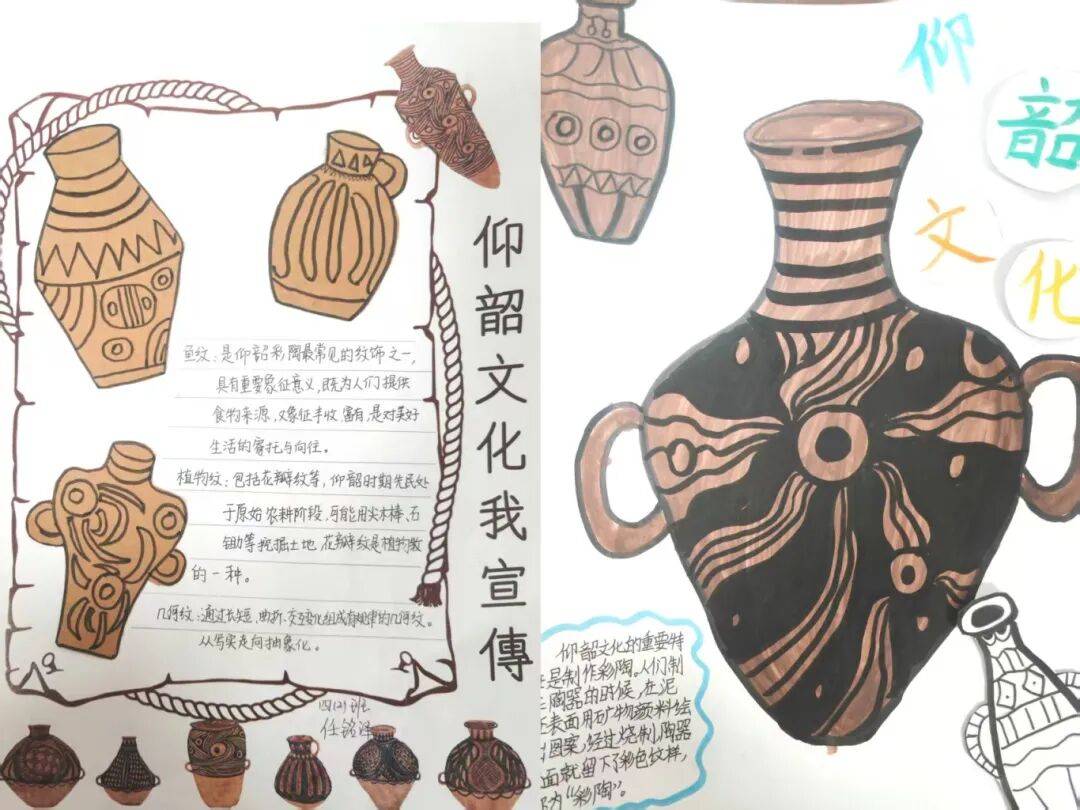 仰韶文化我宣傳
鱼纹：是仰韶彩陶最常见的纹饰之一，
具有重要象征意义，既为人们提供
食物来源，又象征丰收富有，是对美好
生活的寄托与向往。
植物纹：包括花瓣纹等，仰韶时期先民处
于原始农耕阶段，可能用尖木棒、石
锄等挖掘土地 花瓣纹是植物纹
的一种。
几何纹：通过长短、曲折、交互变化组成有规律的几何纹。
从写实走向抽象化。
四(2)班
任铭泽
仰
韶
文
化
仰韶文化的重要特
是制作彩陶。人们制
陶器的时候，在泥
表面用矿物颜料绘
图案，经过烧制，陶器
面就留下彩色纹样，
为“彩陶”。